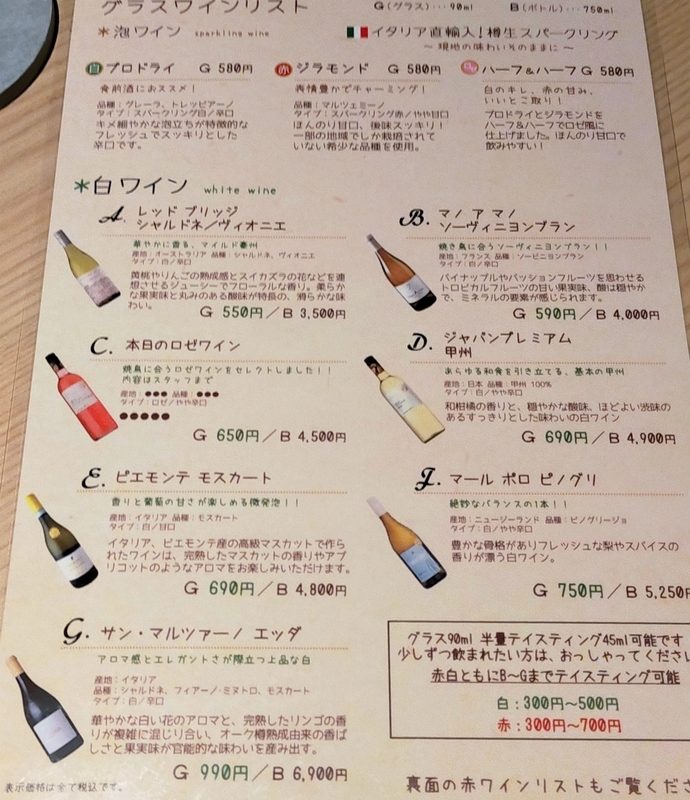 グラスワインリスト
G(グラス)･･･90ml B(ボトル)･･･750ml
*泡ワイン sparkling wine
イタリア直輸入!樽生スパークリング
～現地の味わいそのままに～
白 プロドライ G 580円
食前酒におススメ！
品種：グレーラ、トレッビアーノ
タイプ：スパークリング白/辛口
キメ細やかな泡立ちが特徴的な
フレッシュでスッキリとした
辛口です。
赤 ジラモンド G 580円
表情豊かでチャーミング！
品種：マルツェミーノ
タイプ：スパークリング赤/やや甘口
ほんのり甘口、後味スッキリ！
一部の地域でしか栽培されて
いない希少な品種を使用。
ハーフ&ハーフ G 580円
白のキレ、赤の甘み、
いいとこ取り！
プロドライとジラモンドを
ハーフ&ハーフでロゼ風に
仕上げました。ほんのり甘口で
飲みやすい！
*白ワイン white wine
A. レッド ブリッジ
シャルドネ/ヴィオニエ
華やかに香る、マイルド豪州
産地：オーストラリア 品種：シャルドネ、ヴィオニエ
タイプ：白/辛口
黄桃やりんごの熟成感とスイカズラの花などを連
想させるジューシーでフローラルな香り。柔らか
な果実味と丸みのある酸味が特長の、滑らかな味
わい。
G 550円/B 3,500円
B. マノ ア マノ
ソーヴィニヨンブラン
焼き鳥に合うソーヴィニヨンブラン！！
産地：フランス 品種：ソービニヨンブラン
タイプ：白/辛口
パイナップルやパッションフルーツを思わせる
トロピカルフルーツの甘い果実味、酸は穏やか
で、ミネラルの要素が感じられます。
G 590円/B 4,000円
C. 本日のロゼワイン
焼鳥に合うロゼワインをセレクトしました！！
内容はスタッフまで
産地：●●● 品種：●●●
タイプ：ロゼ/やや辛口
●●●●●
G 650円/B 4,500円
D. ジャパンプレミアム
甲州
あらゆる和食を引き立てる、基本の甲州
産地：日本 品種：甲州 100%
タイプ：白/やや辛口
和柑橘の香りと、穏やかな酸味、ほどよい渋味の
あるすっきりとした味わいの白ワイン
G 690円/B 4,900円
E. ピエモンテ モスカート
香りと葡萄の甘さが楽しめる微発泡！！
産地：イタリア 品種：モスカート
タイプ：白/甘口
イタリア、ピエモンテ産の高級マスカットで作ら
れたワインは、完熟したマスカットの香りやアプ
リコットのようなアロマをお楽しみいただけます。
G 690円/B 4,800円
マール ボロ ピノグリ
絶妙なバランスの1本！！
産地：ニュージーランド 品種：ピノグリージョ
タイプ：白/やや辛口
豊かな骨格がありフレッシュな梨やスパイスの
香りが漂う白ワイン。
G 750円/B 5,250円
G. サン・マルツァーノ エッダ
アロマ感とエレガントさが際立つ上品な白
産地：イタリア
品種：シャルドネ、フィアーノ・ミヌトロ、モスカート
タイプ：白/辛口
華やかな白い花のアロマと、完熟したリンゴの香
りが複雑に混じり合い、オーク樽熟成由来の香ば
しさと果実味が官能的な味わいを産み出す。
G 990円/B 6,900円
グラス90ml 半量テイスティング45ml可能です
少しずつ飲まれたい方は、おっしゃってください
赤白ともにB～Gまでテイスティング可能
白：300円～500円
赤：300円～700円
表示価格は全て税込です。
裏面の赤ワインリストもご覧くださ